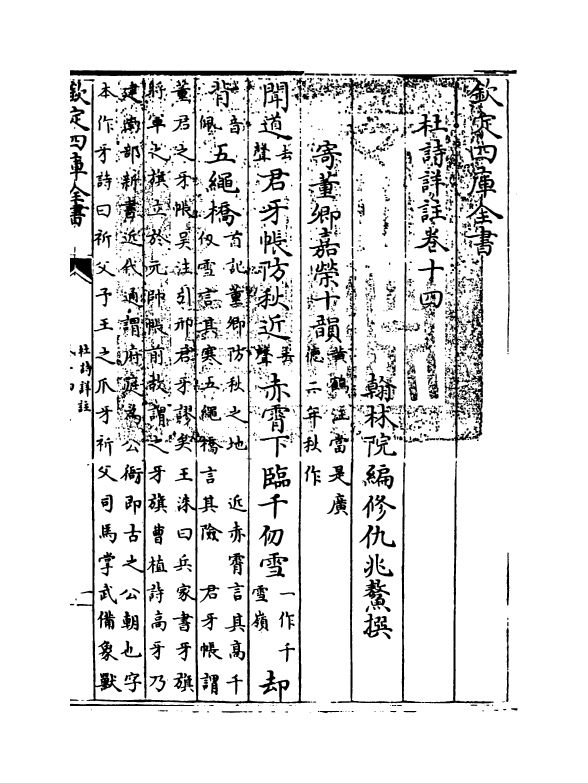 欽定四庫全書
杜詩詳註卷十四
翰林院編修仇兆鰲撰
寄董卿嘉榮十韻黃鶴注當是廣德二年秋作
聞道去聲君牙帳防秋近去聲赤霄下臨千仞雪一作千雪嶺却
背音佩五繩橋首記董卿防秋之地近赤霄言其高千仞雪言其寒五繩橋言其險君牙帳謂
董君之牙帳吳注引邢君牙謬矣王洙曰兵家書牙旗
將軍之旗立於元帥帳前故謂之牙旗曹植詩高牙乃
建南部新書近代通謂府庭為公衙即古之公朝也字
本作牙詩曰祈父予王之爪牙祈父司馬掌武備象獸
欽定四庫全書
杜詩詳註
一